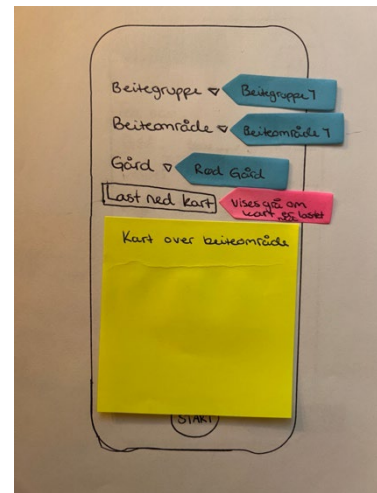 Beitegruppe ▽ Beitegruppe 1
Beiteområde ▽ Beiteområde 1
Gård ▽ Rød Gård
Last ned kart
Vises grå om
kart er lastet
Kart over beiteområde
START